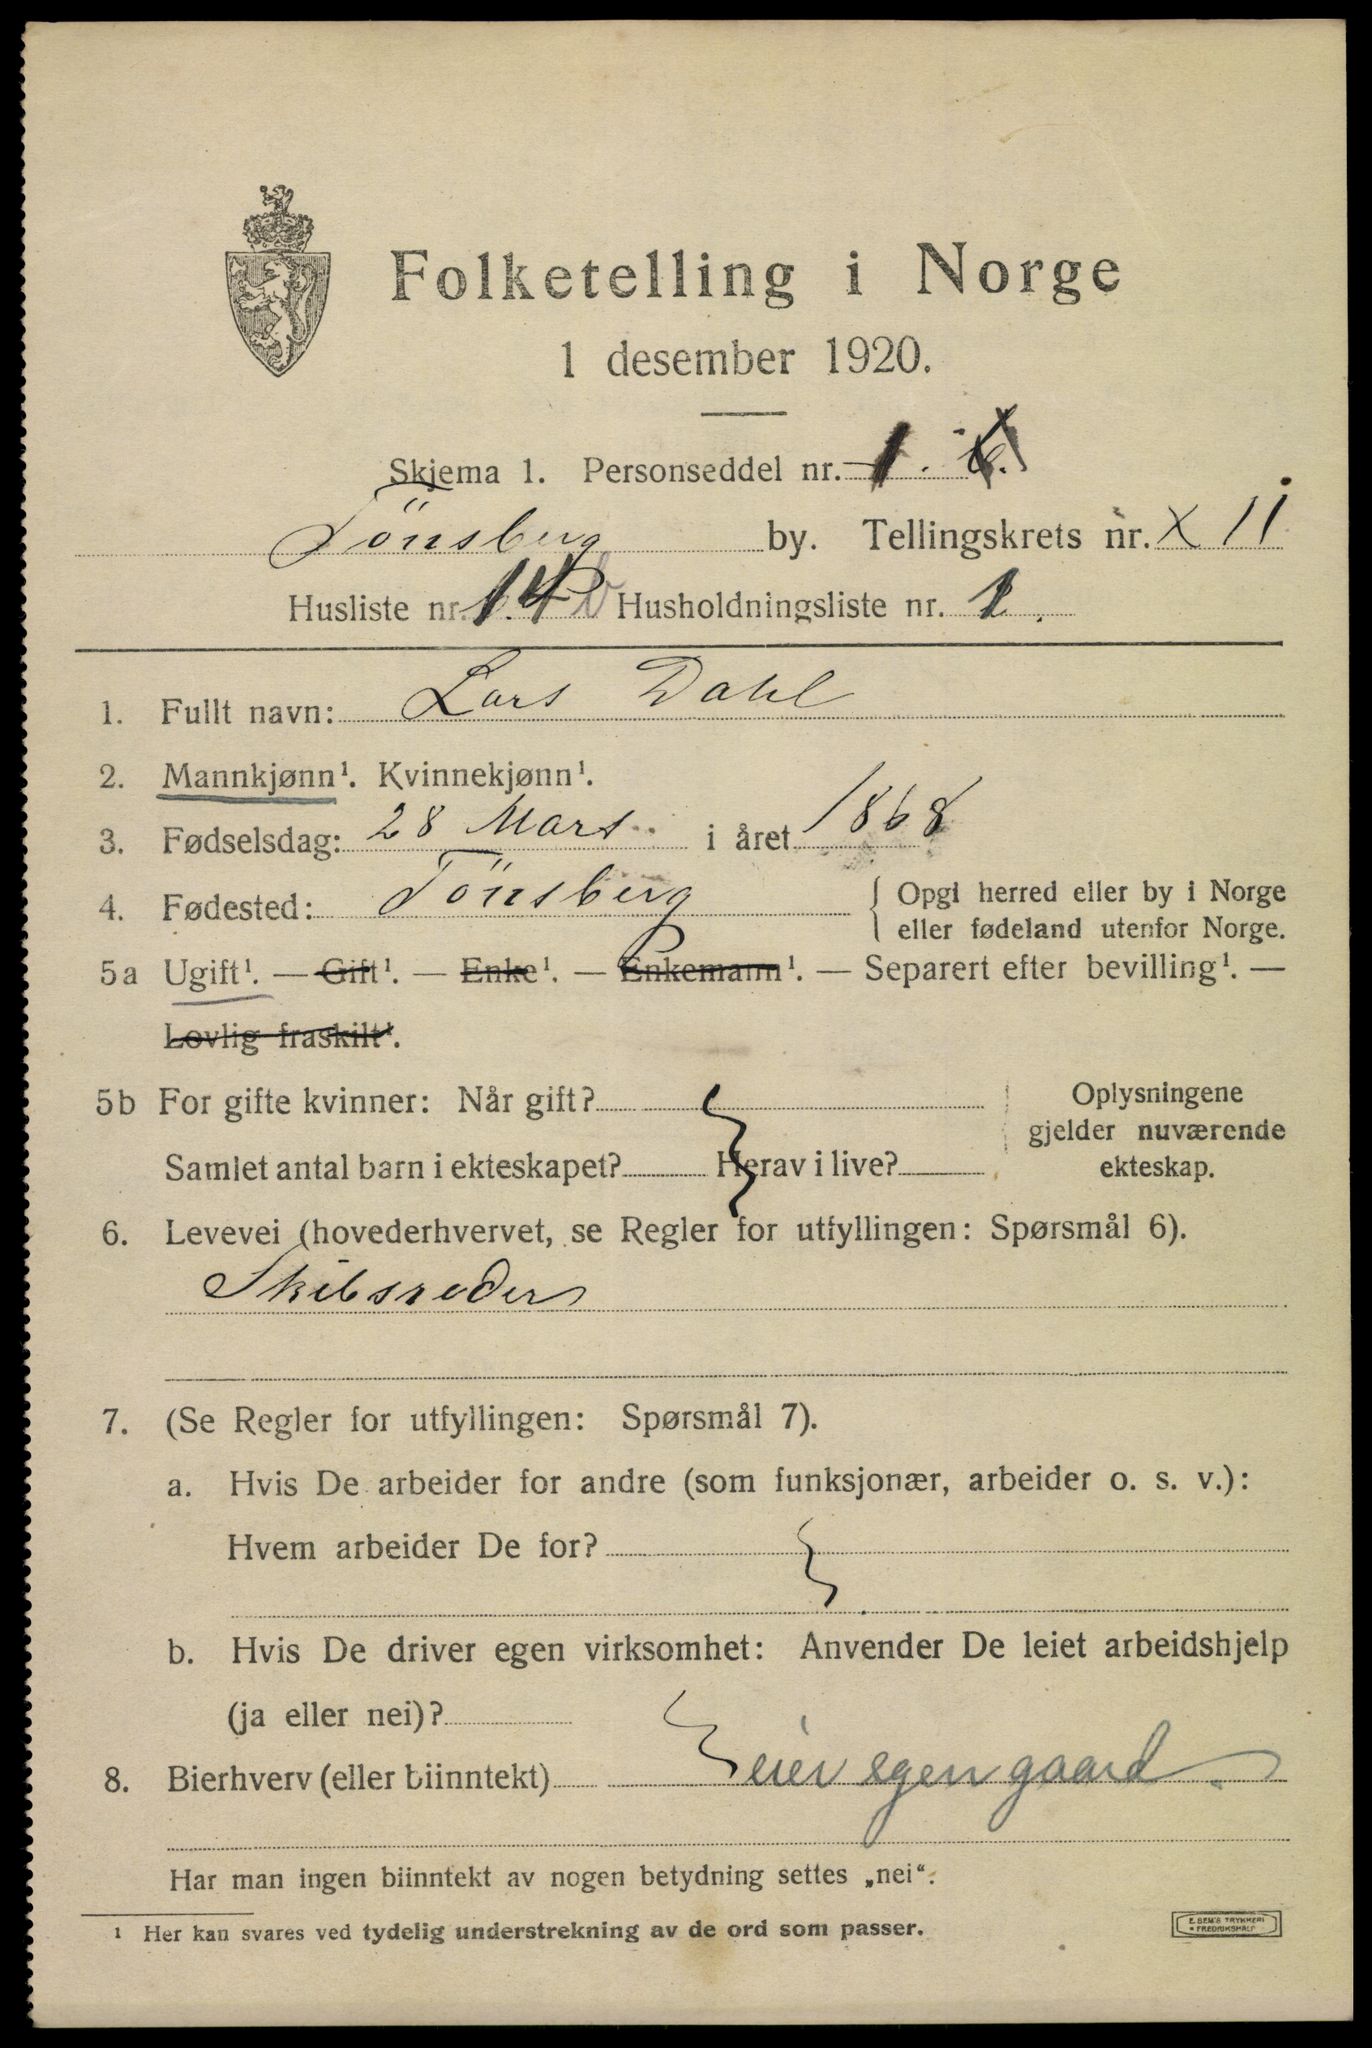 Folketelling i Norge
1 desember 1920.
Skjema 1. Personseddel nr. 1.
Tönsberg by. Tellingskrets nr. X 11
Husliste nr. 14 b Husholdningsliste nr. 1.
1. Fullt navn: Lars Dahl
2. Mannkjønn¹. Kvinnekjønn¹.
3. Fødselsdag: 28 Mars i året 1868
4. Fødested: Tönsberg { Opgi herred eller by i Norge
eller fødeland utenfor Norge.
5a Ugift¹. — Gift¹. — Enke¹. — Enkemann¹. — Separert efter bevilling¹. —
Lovlig fraskilt¹.
5b For gifte kvinner: Når gift?
Samlet antal barn i ekteskapet? Herav i live?
Oplysningene
gjelder nuværende
ekteskap.
6. Levevei (hovederhvervet, se Regler for utfyllingen: Spørsmål 6).
Skibsreder
7. (Se Regler for utfyllingen: Spørsmål 7).
a. Hvis De arbeider for andre (som funksjonær, arbeider o. s. v.):
Hvem arbeider De for?
b. Hvis De driver egen virksomhet: Anvender De leiet arbeidshjelp
(ja eller nei)?
8. Bierhverv (eller biinntekt) eier egen gaard.
Har man ingen biinntekt av nogen betydning settes „nei“.
¹ Her kan svares ved tydelig understrekning av de ord som passer.
E. SEM'S TRYKKERI
FREDRIKSHALD